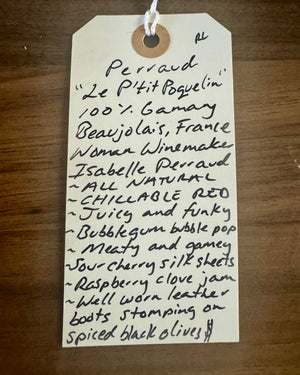 Perraud
"Le P'tit Poquelin"
100% Gamany
Beaujolais, France
Woman Winemaker
Isabelle Perraud
~ALL NATURAL
~CHILLABLE RED
~Juicy and funky
~Bubblegum bubble pop
~Meaty and gamey
~Sour cherry silk sheets
~Raspberry clove jam
~Well worn leather
boots stomping on
spiced black olives $